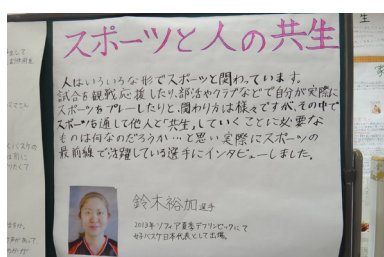 スポーツと人の共生
人はいろいろな形でスポーツと関わっています。
試合を観戦応援したり、部活やクラブなどで自分が実際に
スポーツをプレーしたりと、関わり方は様々ですが、その中で
スポーツを通して他人と「共生」していくことに必要な
ものは何なのだろうか…と思い実際にスポーツの
最前線で活躍している選手にインタビューしました。
鈴木裕加選手
2013年ソフィア夏季デフリンピックにて
女子バスケ日本代表として出場。